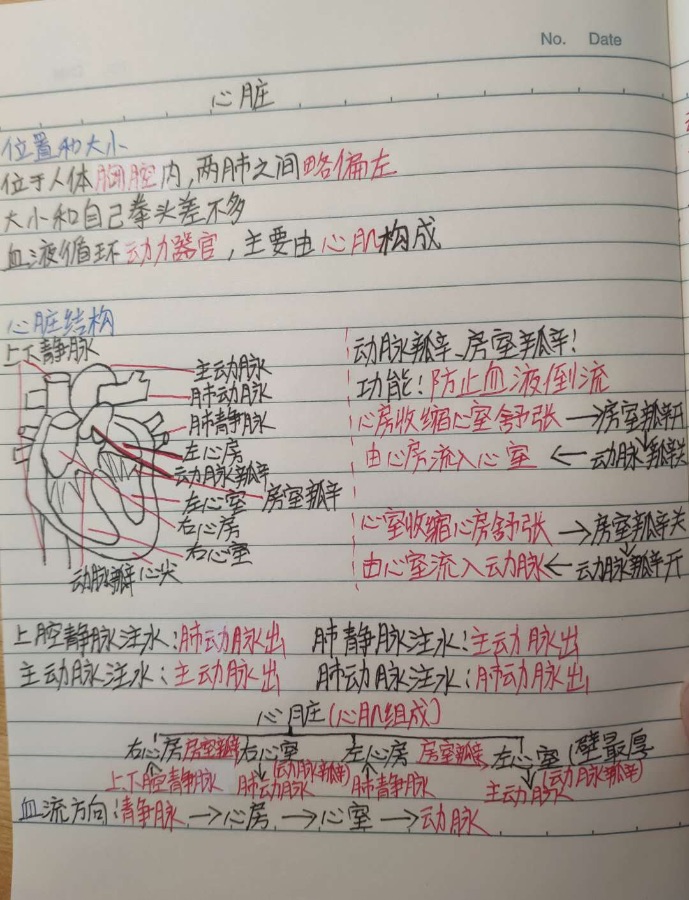 No. Date
心脏
位置和大小
位于人体胸腔内,两肺之间略偏左
大小和自己拳头差不多
血液循环动力器官,主要由心肌构成
心脏结构
上下静脉
主动脉
肺动脉
肺静脉
左心房
动脉瓣
左心室 房室瓣
右心房
右心室
动脉瓣 心尖
动脉瓣、房室瓣:
功能:防止血液倒流
心房收缩心室舒张→房室瓣开
由心房流入心室←动脉瓣关
心室收缩心房舒张→房室瓣关
由心室流入动脉←动脉瓣开
上腔静脉注水:肺动脉出 肺静脉注水:主动脉出
主动脉注水:主动脉出 肺动脉注水:肺动脉出
心脏(心肌组成)
右心房 房室瓣 右心室 左心房 房室瓣 左心室(壁最厚
上下腔静脉 肺动脉(动脉瓣) 肺静脉 主动脉(动脉瓣)
血流方向:静脉→心房→心室→动脉